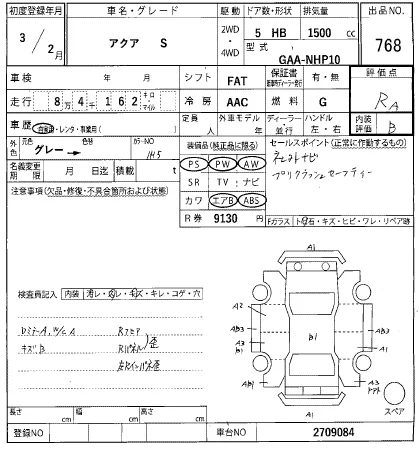 初度登録年月 車名・グレード 駆動 ドア数・形状 排気量 出品NO.
3 / 2月 アクア S 2WD・4WD 5 HB 1500 cc 768
型式 GAA-NHP10
車検 年 月 シフト FAT 保証書 有・無 評価点
走行 8万4千162 キロ・マイル 冷房 AAC 燃料 G RA
車歴 自家用・レンタ・事業用( ) 定員 人 外車モデル 年 ディーラー・並行 ハンドル 左・右 内装評価 B
外色 元色 グレー → 色替 カラーNO 1H5
装備品(純正品に限る) セールスポイント(正常に作動するもの)
名義変更期限 月 日迄 積載 t
PS PW AW
SR TV ナビ
カワ エアB ABS
注意事項(欠品・修復・不具合箇所および状態)
R券 9130 円
Fガラス トビ石・キズ・ヒビ・ワレ・リペア跡
検査員記入 内装 汚レ・スレ・キズ・キレ・コゲ・穴
キズB
A1
A2
AB3
A3
B1
AB3
A1
A3
A1
スペア
長さ cm 幅 cm 高さ cm
登録NO 車台NO 2709084